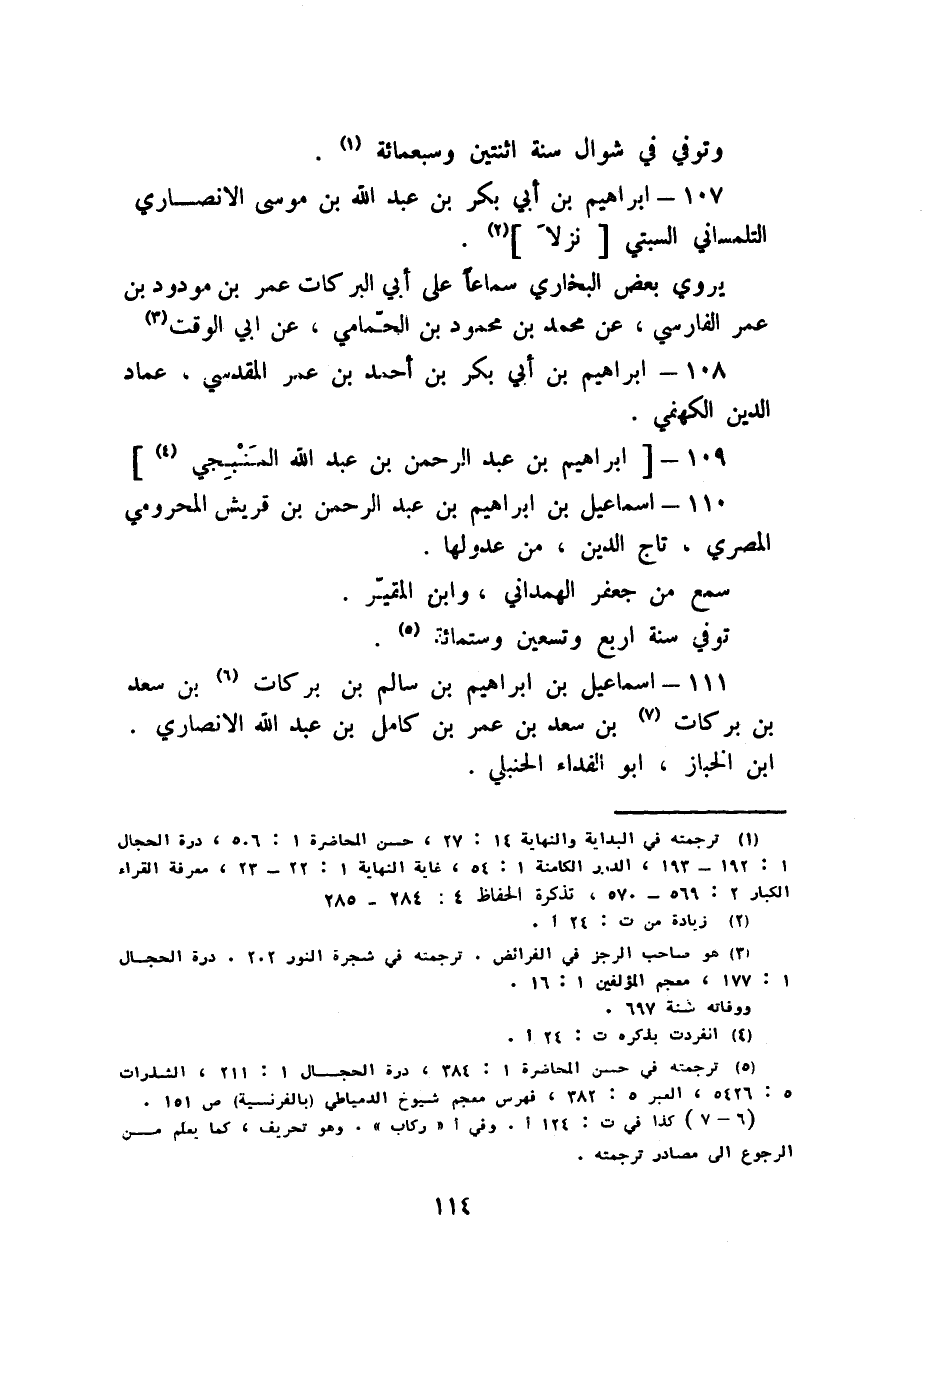 وتوفي في شوال سنة اثنتين وسبعمائة (١) .
١٠٧ – ابراهيم بن أبي بكر بن عبد الله بن موسى الانصاري
التلمساني السبتي [ نزلاً ](٢) .
يروي بعض البخاري سماعاً على أبي البركات عمر بن مودود بن
عمر الفارسي ، عن محمد بن محمود بن الحمّامي ، عن ابي الوقت(٣)
١٠٨ – ابراهيم بن أبي بكر بن أحمد بن عمر المقدسي ، عماد
الدين الكهنمي .
١٠٩ – [ ابراهيم بن عبد الرحمن بن عبد الله المَنْبِجي (٤) ]
١١٠ – اسماعيل بن ابراهيم بن عبد الرحمن بن قريش المحرومي
المصري ، تاج الدين ، من عدولها .
سمع من جعفر الهمداني ، وابن المقيّر .
توفي سنة اربع وتسعين وستمائة (٥) .
١١١ – اسماعيل بن ابراهيم بن سالم بن بركات (٦) بن سعد
بن بركات (٧) بن سعد بن عمر بن كامل بن عبد الله الانصاري .
ابن الخباز ، ابو الفداء الحنبلي .
(١) ترجمته في البداية والنهاية ١٤ : ٢٧ ، حسن المحاضرة ١ : ٥٠٦ ، درة الحجال
١ : ١٩٢ – ١٩٣ ، الدرر الكامنة ١ : ٥٤ ، غاية النهاية ١ : ٢٢ – ٢٣ ، معرفة القراء
الكبار ٢ : ٥٦٩ – ٥٧٠ ، تذكرة الحفاظ ٤ : ٢٨٤ – ٢٨٥
(٢) زيادة من ت : ٢٤ أ .
(٣) هو صاحب الرجز في الفرائض . ترجمته في شجرة النور ٢٠٢ . درة الحجال
١ : ١٧٧ ، معجم المؤلفين ١ : ١٦ .
ووفاته شنة ٦٩٧ .
(٤) انفردت بذكره ت : ٢٤ أ .
(٥) ترجمته في حسن المحاضرة ١ : ٣٨٤ ، درة الحجال ١ : ٢١١ ، الشذرات
٥ : ٥٤٢٦ ، العبر ٥ : ٣٨٢ ، فهرس معجم شيوخ الدمياطي (بالفرنسية) ص ١٥١ .
(٦ – ٧ ) كذا في ت : ١٢٤ أ . وفي أ « ركاب » . وهو تحريف ، كما يعلم من
الرجوع الى مصادر ترجمته .
١١٤